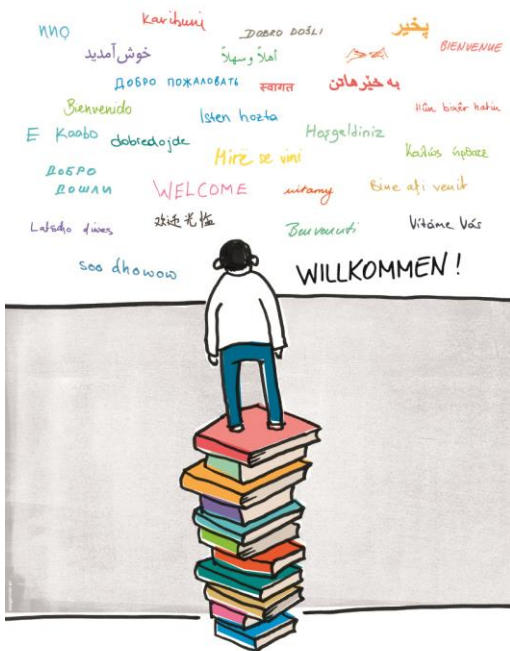 Karibuni
DOBRO DOŠLI
پخير
خوش آمدید
اهلاً وسهلاً
BIENVENUE
ДОБРО ПОЖАЛОВАТЬ
स्वागत
به خێر هاتن
Bienvenido
Isten hozta
Hûn bixêr hatin
E Kaabo
dobredojde
Hoşgeldiniz
Mirë se vini
ДОБРО
ДОШЛИ
WELCOME
witamy
Bine aţi venit
Latscho diwes
欢迎光临
Benvenuti
Vítáme Vás
soo dhowow
WILLKOMMEN!